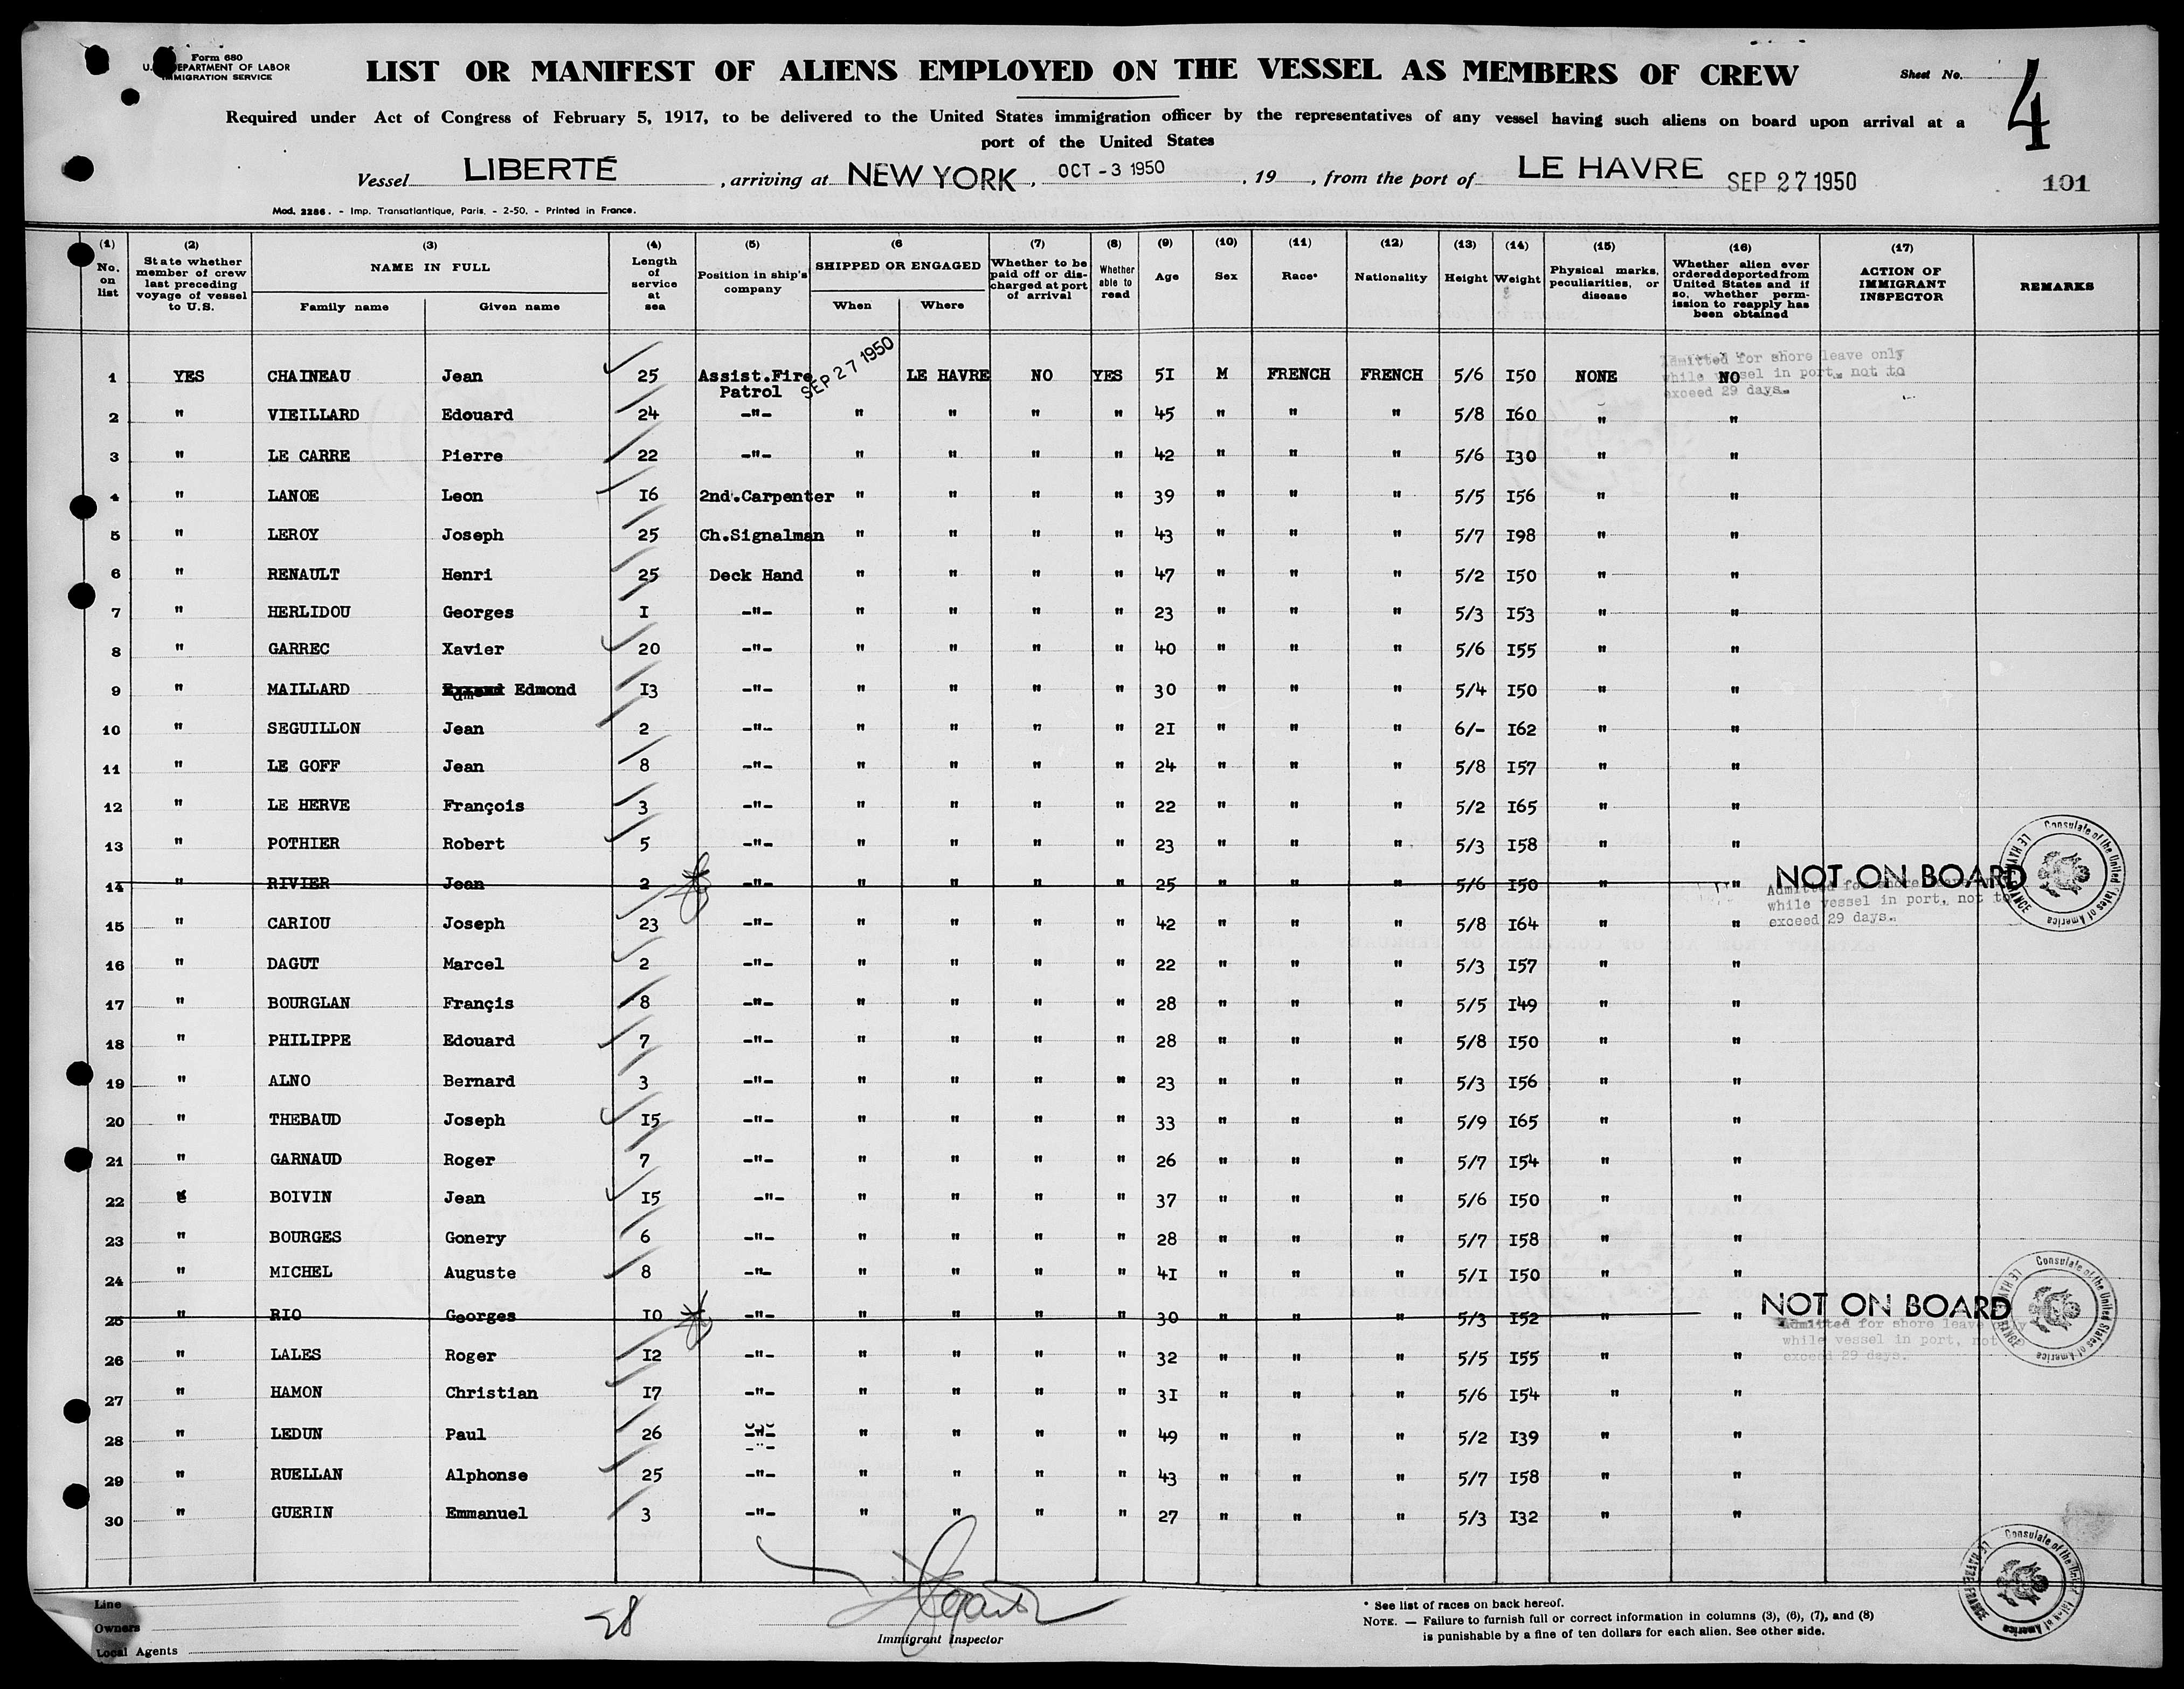 Form 680
U.S. DEPARTMENT OF LABOR
IMMIGRATION SERVICE
LIST OR MANIFEST OF ALIENS EMPLOYED ON THE VESSEL AS MEMBERS OF CREW
Sheet No. 4
Required under Act of Congress of February 5, 1917, to be delivered to the United States immigration officer by the representatives of any vessel having such aliens on board upon arrival at a
port of the United States
Vessel LIBERTÉ, arriving at NEW YORK, OCT -3 1950, 19, from the port of LE HAVRE SEP 27 1950
101
Mod. 2286. - Imp. Transatlantique, Paris. - 2-50. - Printed in France.
(1) No. on list
(2) State whether member of crew last preceding voyage of vessel to U.S.
(3) NAME IN FULL Family name Given name
(4) Length of service at sea
(5) Position in ship's company
(6 SHIPPED OR ENGAGED When Where
(7) Whether to be paid off or discharged at port of arrival
(8) Whether able to read
(9) Age
(10) Sex
(11) Race*
(12) Nationality
(13) Height
(14) Weight
(15) Physical marks, peculiarities, or disease
(16) Whether alien ever ordered deported from United States and if so, whether permission to reapply has been obtained
(17) ACTION OF IMMIGRANT INSPECTOR
REMARKS
1 YES CHAINEAU Jean 25 Assist.Fire Patrol SEP 27 1950 LE HAVRE NO YES 5I M FRENCH FRENCH 5/6 I50 NONE NO
Admitted for shore leave only
while vessel in port, not to
exceed 29 days.
2 " VIEILLARD Edouard 24 -"- " " " " 45 " " " 5/8 I60 " "
3 " LE CARRE Pierre 22 -"- " " " " 42 " " " 5/6 I30 " "
4 " LANOE Leon I6 2nd.Carpenter " " " " 39 " " " 5/5 I56 " "
5 " LEROY Joseph 25 Ch.Signalman " " " " 43 " " " 5/7 I98 " "
6 " RENAULT Henri 25 Deck Hand " " " " 47 " " " 5/2 I50 " "
7 " HERLIDOU Georges I -"- " " " " 23 " " " 5/3 I53 " "
8 " GARREC Xavier 20 -"- " " " " 40 " " " 5/6 I55 " "
9 " MAILLARD Edmond I3 -"- " " " " 30 " " " 5/4 I50 " "
10 " SEGUILLON Jean 2 -"- " " " " 2I " " " 6/- I62 " "
11 " LE GOFF Jean 8 -"- " " " " 24 " " " 5/8 I57 " "
12 " LE HERVE François 3 -"- " " " " 22 " " " 5/2 I65 " "
13 " POTHIER Robert 5 -"- " " " " 23 " " " 5/3 I58 " "
14 " RIVIER Jean 2 -"- " " " " 25 " " " 5/6 I50 " " NOT ON BOARD
Admitted for shore
while vessel in port, not to
exceed 29 days.
Consulate of the United States of America LE HAVRE FRANCE
15 " CARIOU Joseph 23 -"- " " " " 42 " " " 5/8 I64 " "
16 " DAGUT Marcel 2 -"- " " " " 22 " " " 5/3 I57 " "
17 " BOURGLAN Françis 8 -"- " " " " 28 " " " 5/5 I49 " "
18 " PHILIPPE Edouard 7 -"- " " " " 28 " " " 5/8 I50 " "
19 " ALNO Bernard 3 -"- " " " " 23 " " " 5/3 I56 " "
20 " THEBAUD Joseph I5 -"- " " " " 33 " " " 5/9 I65 " "
21 " GARNAUD Roger 7 -"- " " " " 26 " " " 5/7 I54 " "
22 BOIVIN Jean I5 -"- " " " " 37 " " " 5/6 I50 " "
23 " BOURGES Gonery 6 -"- " " " " 28 " " " 5/7 I58 " "
24 " MICHEL Auguste 8 -"- " " " " 4I " " " 5/I I50 " "
25 " RIO Georges I0 -"- " " " " 30 " " " 5/3 I52 " " NOT ON BOARD
Admitted for shore leave only
while vessel in port, not
exceed 29 days.
Consulate of the United States of America LE HAVRE FRANCE
26 " LALES Roger I2 -"- " " " " 32 " " " 5/5 I55 " "
27 " HAMON Christian I7 -"- " " " " 3I " " " 5/6 I54 " "
28 " LEDUN Paul 26 -"- " " " " 49 " " " 5/2 I39 " "
29 " RUELLAN Alphonse 25 -"- " " " " 43 " " " 5/7 I58 " "
30 " GUERIN Emmanuel 3 -"- " " " " 27 " " " 5/3 I32 " "
Consulate of the United States of America LE HAVRE FRANCE
Line
Owners
Local Agents
28
Immigrant Inspector
* See list of races on back hereof.
NOTE. — Failure to furnish full or correct information in columns (3), (6), (7), and (8)
is punishable by a fine of ten dollars for each alien. See other side.